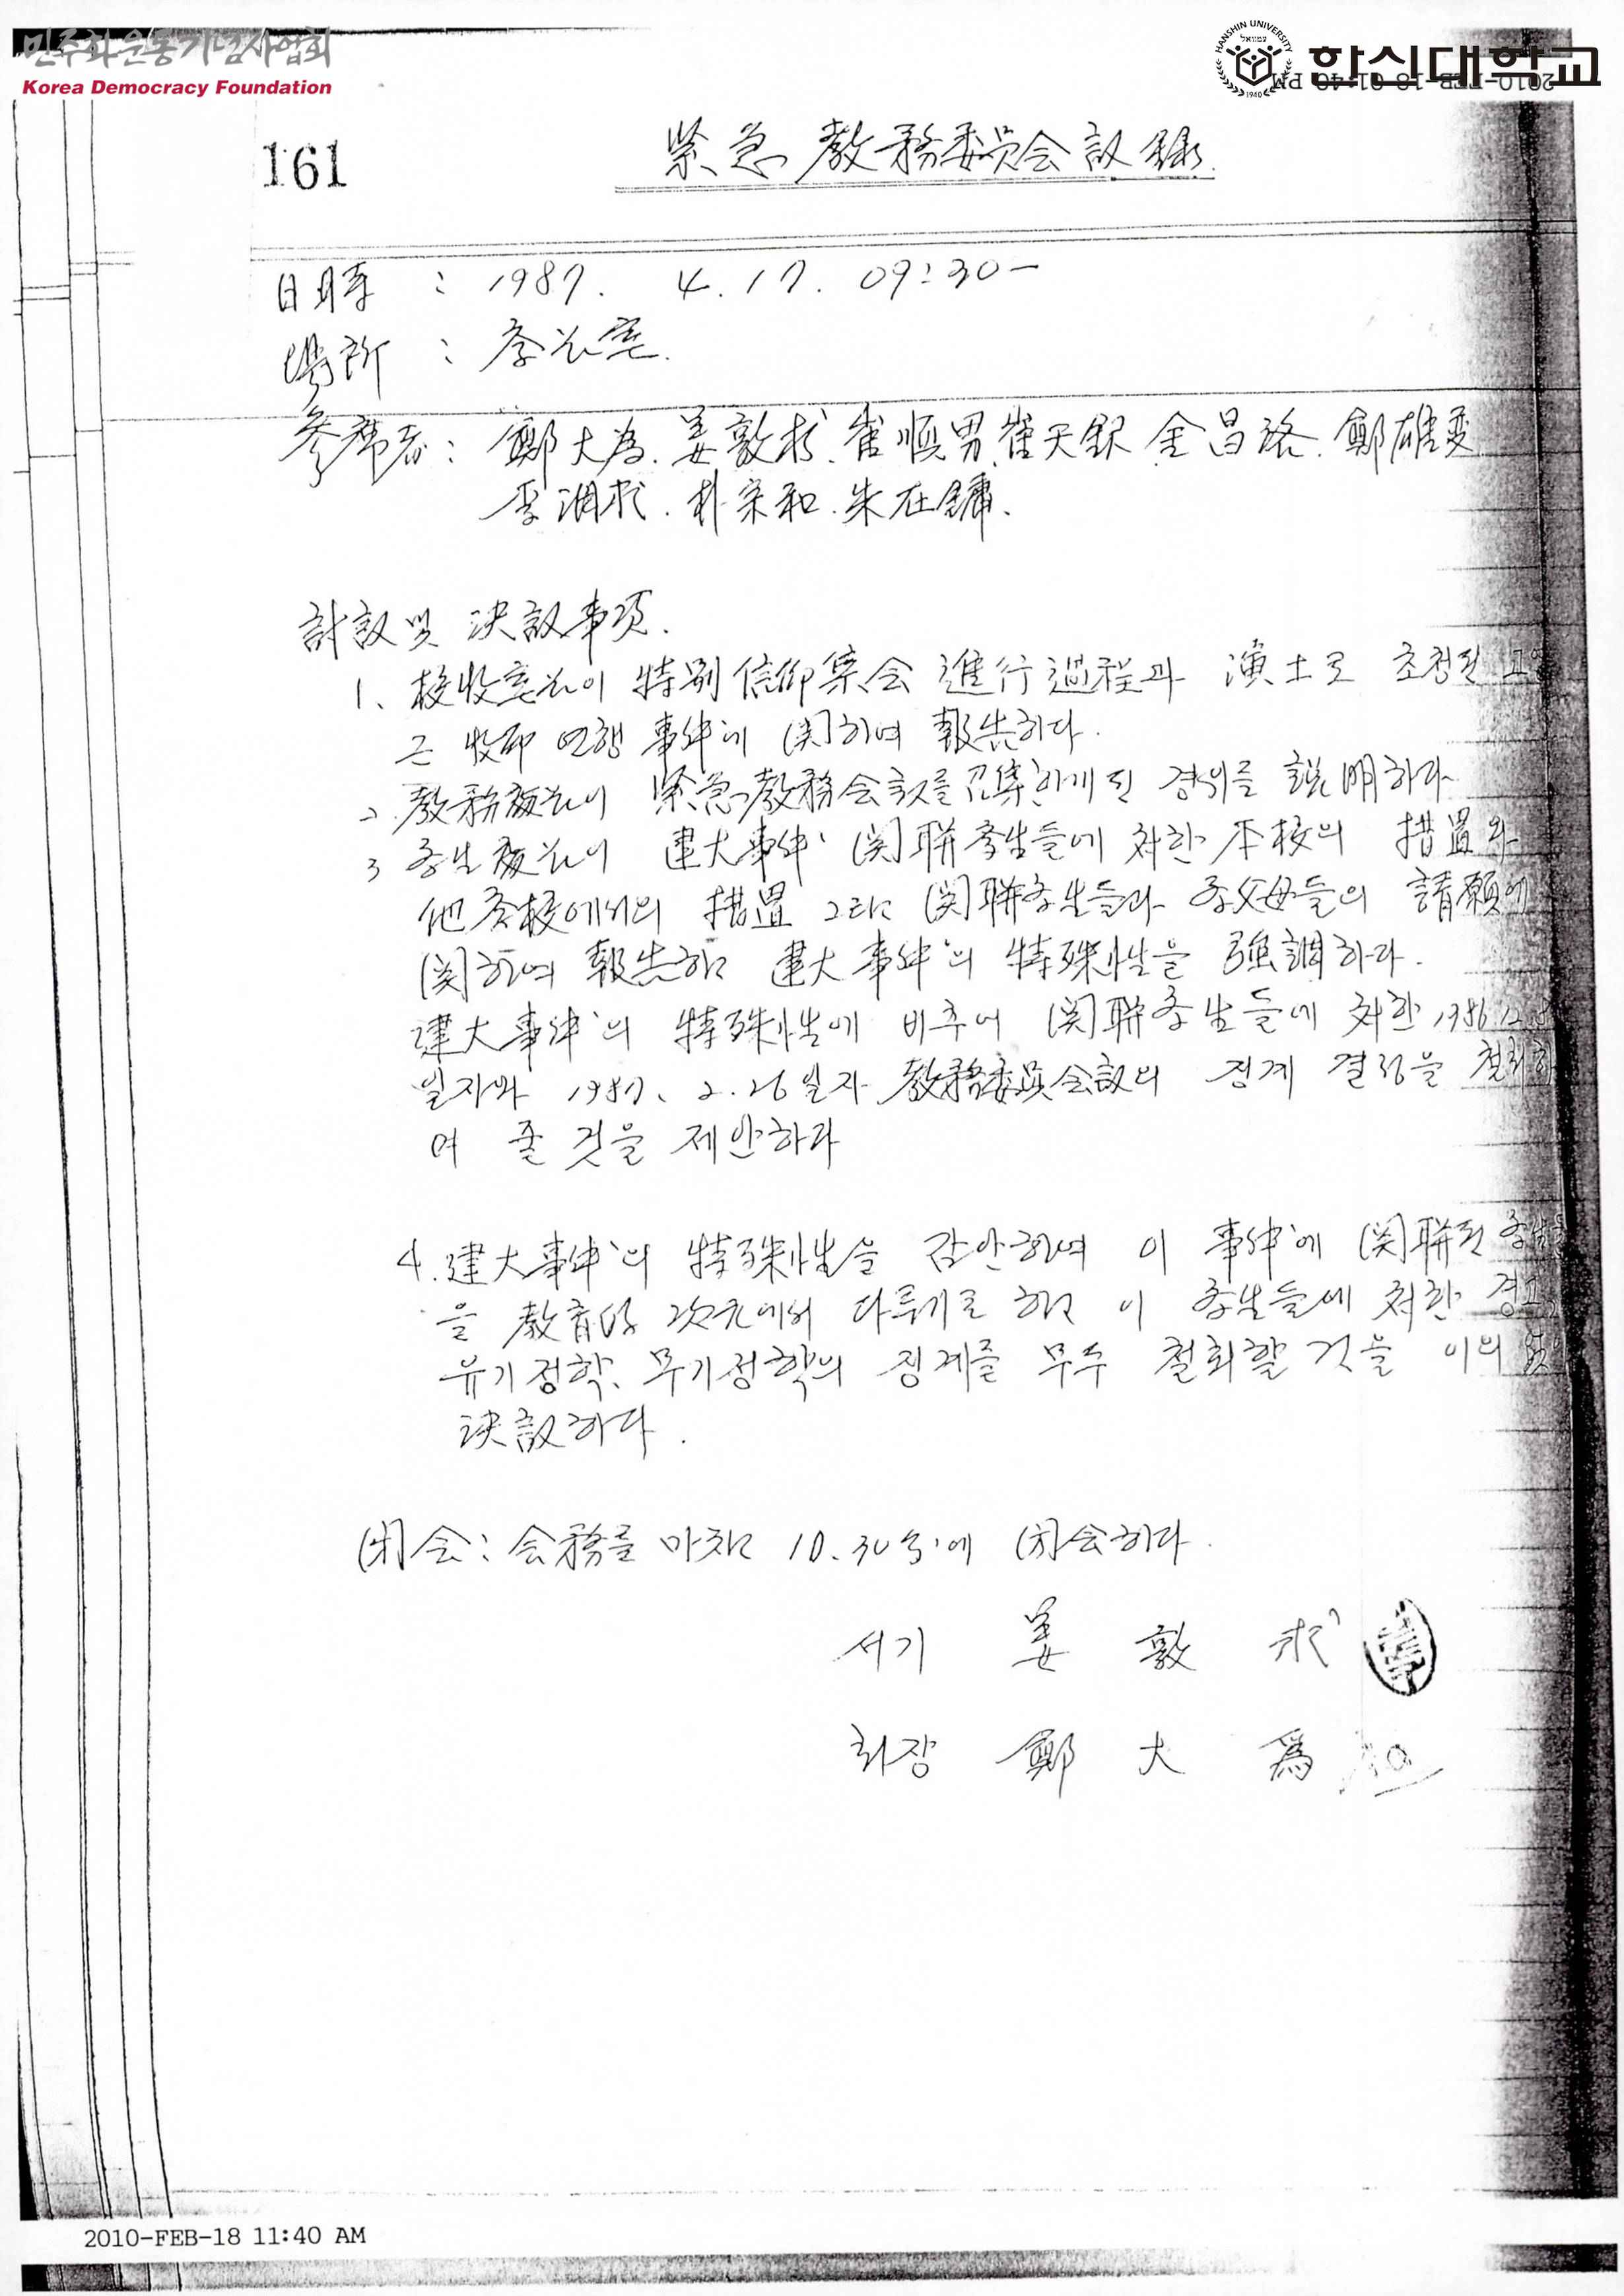 민주화운동기념사업회
Korea Democracy Foundation
HANSHIN UNIVERSITY
1940
한신대학교
2010-FEB-18 01:40 PM
161
緊急 敎務委員会議錄.
日時 : 1987. 4. 17. 09:30-
場所 : 学长室.
參席者 : 鄭大爲. 姜敦求. 崔順男. 崔天鉙 金昌洛. 鄭雄燮
李潤求. 朴宗和. 朱在鏞.
討議 및 決議事項.
1. 校牧室长이 特別信仰集会 進行過程과 演士로 초청된 고영
근 牧師 연행 事件에 関하여 報告하다.
2. 敎務處长이 緊急敎務会議를 召集하게 된 경위를 說明하다
3 学生處长이 建大事件 関聯学生들에 対한 本校의 措置와
他学校에서의 措置 그리고 関聯学生들과 学父母들의 請願에
関하여 報告하고 建大事件의 特殊性을 强調하다.
建大事件의 特殊性에 비추어 関聯学生들에 対한 1986.12.
일자와 1987. 2. 26일자 敎務委員会議의 징계 결정을 철회하
여 줄 것을 제안하다
4. 建大事件의 特殊性을 감안하여 이 事件에 関聯된 学生들
을 敎育的 次元에서 다루기로 하고 이 学生들에 対한 경고,
유기정학, 무기정학의 징계를 모두 철회할 것을 이의 없이
決議하다.
闭会 : 会務를 마치고 10.30分에 闭会하다.
서기 姜 敦 求
회장 鄭 大 爲
2010-FEB-18 11:40 AM